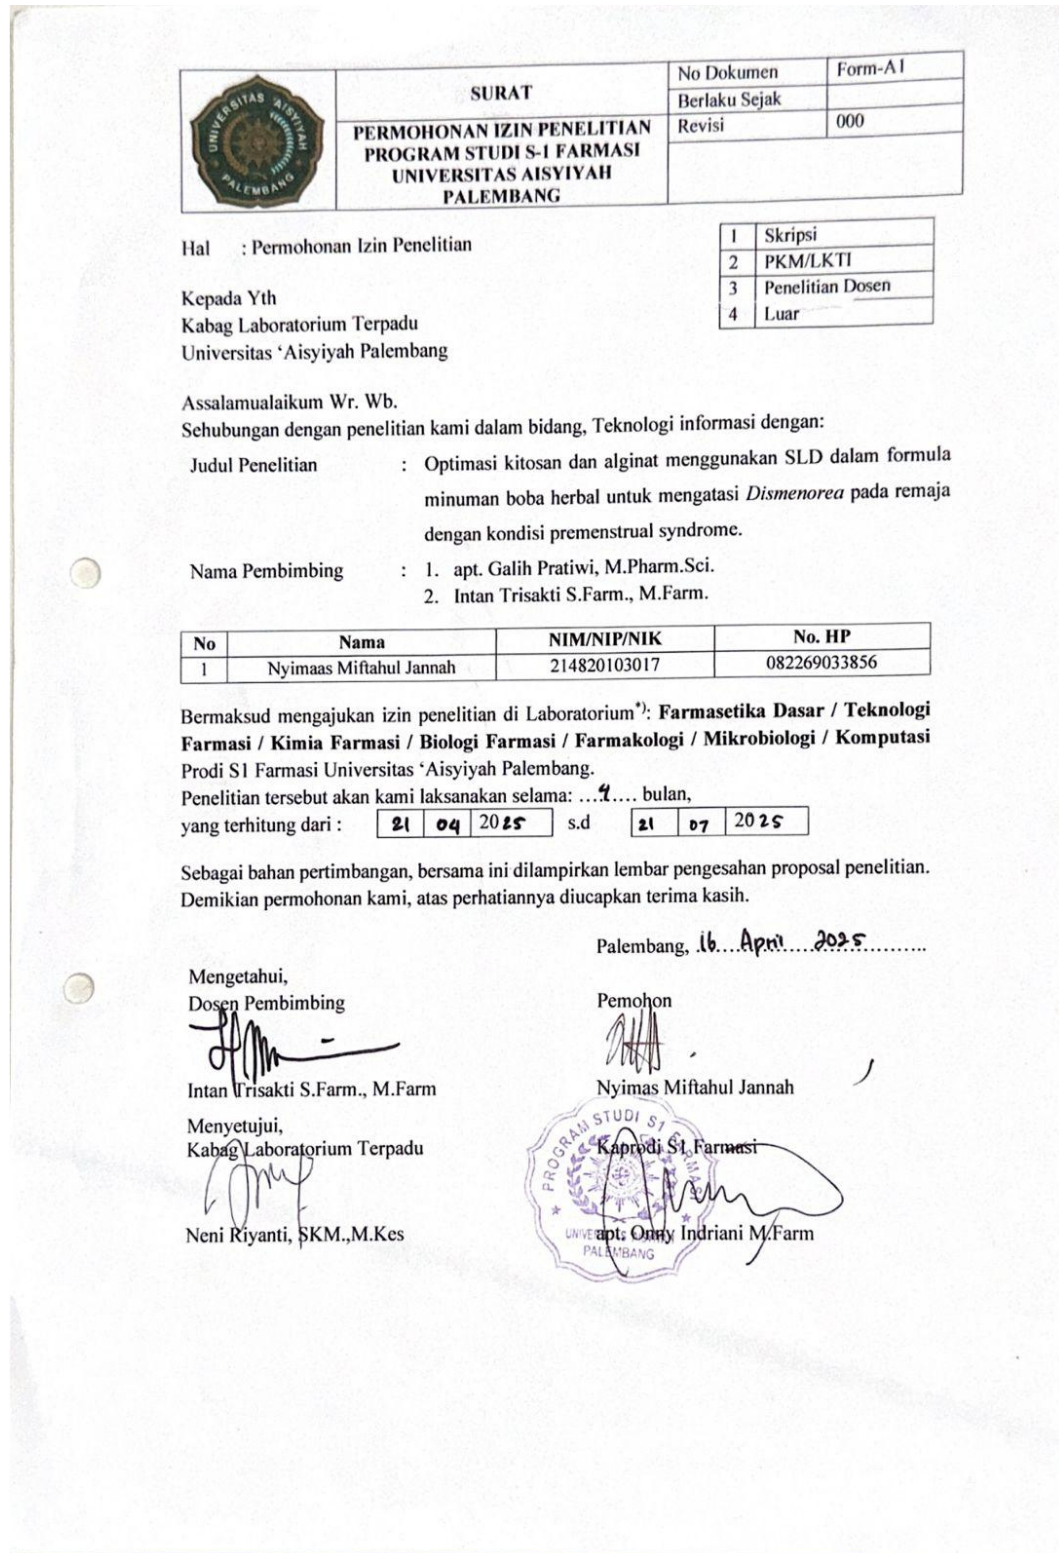 UNIVERSITAS 'AISYIYAH
PALEMBANG
SURAT
PERMOHONAN IZIN PENELITIAN
PROGRAM STUDI S-1 FARMASI
UNIVERSITAS AISYIYAH
PALEMBANG
No Dokumen Form-A1
Berlaku Sejak
Revisi 000
Hal : Permohonan Izin Penelitian
1 Skripsi
2 PKM/LKTI
3 Penelitian Dosen
4 Luar
Kepada Yth
Kabag Laboratorium Terpadu
Universitas ‘Aisyiyah Palembang
Assalamualaikum Wr. Wb.
Sehubungan dengan penelitian kami dalam bidang, Teknologi informasi dengan:
Judul Penelitian : Optimasi kitosan dan alginat menggunakan SLD dalam formula
minuman boba herbal untuk mengatasi Dismenorea pada remaja
dengan kondisi premenstrual syndrome.
Nama Pembimbing : 1. apt. Galih Pratiwi, M.Pharm.Sci.
2. Intan Trisakti S.Farm., M.Farm.
No Nama NIM/NIP/NIK No. HP
1 Nyimaas Miftahul Jannah 214820103017 082269033856
Bermaksud mengajukan izin penelitian di Laboratorium*): Farmasetika Dasar / Teknologi
Farmasi / Kimia Farmasi / Biologi Farmasi / Farmakologi / Mikrobiologi / Komputasi
Prodi S1 Farmasi Universitas ‘Aisyiyah Palembang.
Penelitian tersebut akan kami laksanakan selama: ........ bulan,
yang terhitung dari : 21 04 2025 s.d 21 07 2025
Sebagai bahan pertimbangan, bersama ini dilampirkan lembar pengesahan proposal penelitian.
Demikian permohonan kami, atas perhatiannya diucapkan terima kasih.
Palembang, 16 April 2025
Mengetahui,
Dosen Pembimbing
Intan Trisakti S.Farm., M.Farm
Pemohon
Nyimas Miftahul Jannah
Menyetujui,
Kabag Laboratorium Terpadu
Neni Riyanti, SKM.,M.Kes
Kaprodi S1 Farmasi
apt. Onny Indriani M.Farm
PROGRAM STUDI S1 FARMASI
PALEMBANG